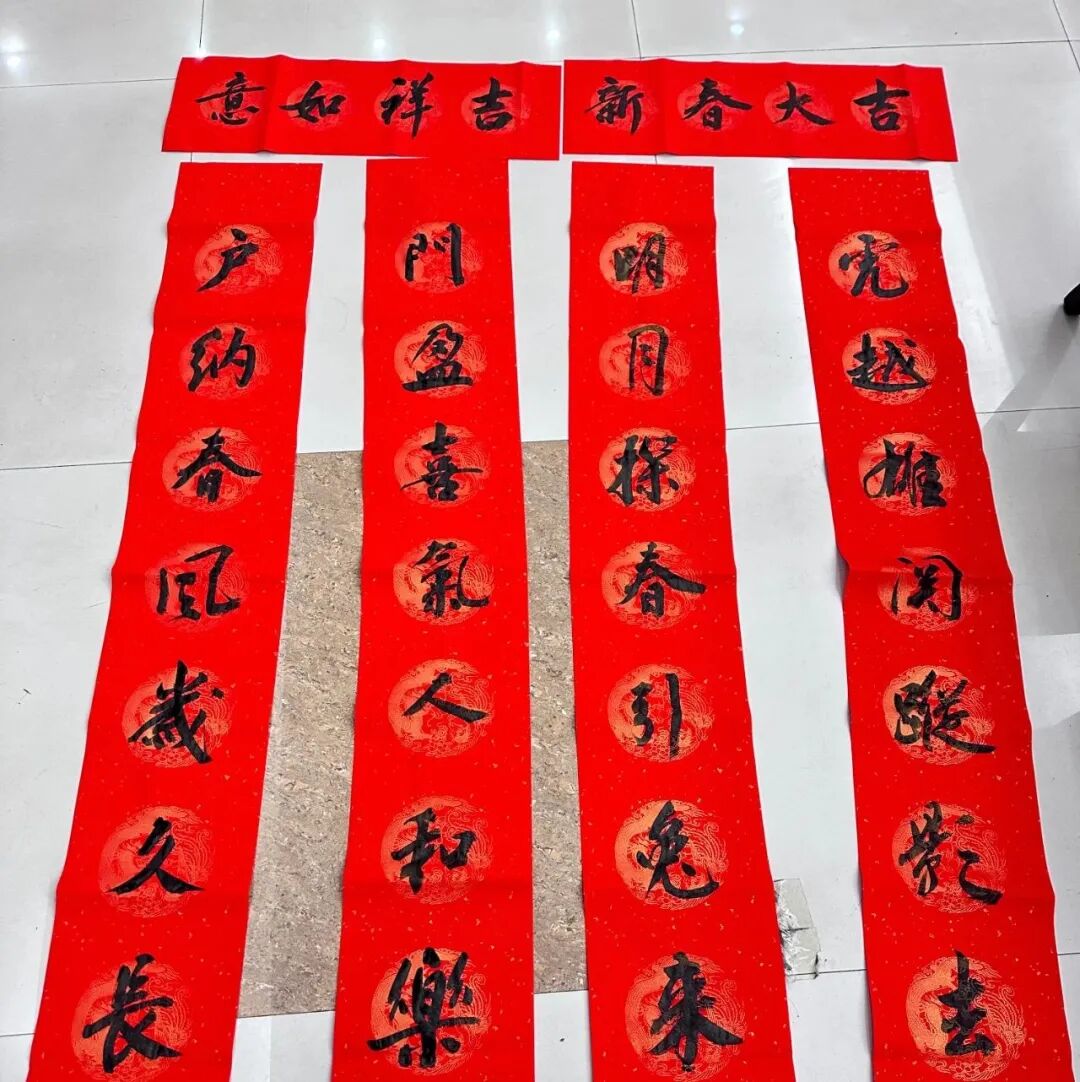 吉祥如意
新春大吉
虎越雄関蹤影去
明月探春引兔来
門盈喜氣人和樂
户納春風歲久長